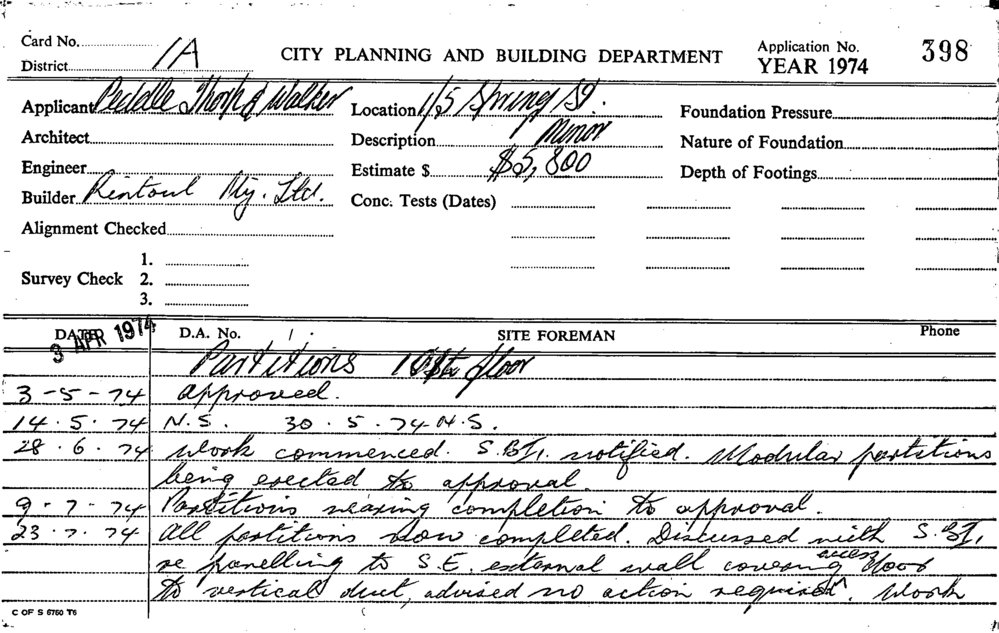 Card No. 1A
District
CITY PLANNING AND BUILDING DEPARTMENT
Application No. 398
YEAR 1974
Applicant Peddle Thorp & Walker
Location 1/5 Spring St.
Foundation Pressure
Architect
Description Minor
Nature of Foundation
Engineer
Estimate $ $5,800
Depth of Footings
Builder Rintoul Pty. Ltd.
Conc. Tests (Dates)
Alignment Checked
1.
Survey Check 2.
3.
DATE D.A. No. SITE FOREMAN Phone
3 APR 1974
Partitions floor
3-5-74 approved.
14.5.74 N.S. 30.5.74 N.S.
28.6.74 Work commenced. S.B.I. notified. Modular partitions
being erected to approval.
9-7-74 Partitions nearing completion to approval.
23.7.74 All partitions now completed. Discussed with S.B.I.
re panelling to S.E. external wall covering access door
to vertical duct, advised no action required. Work
C OF S 6750 T6